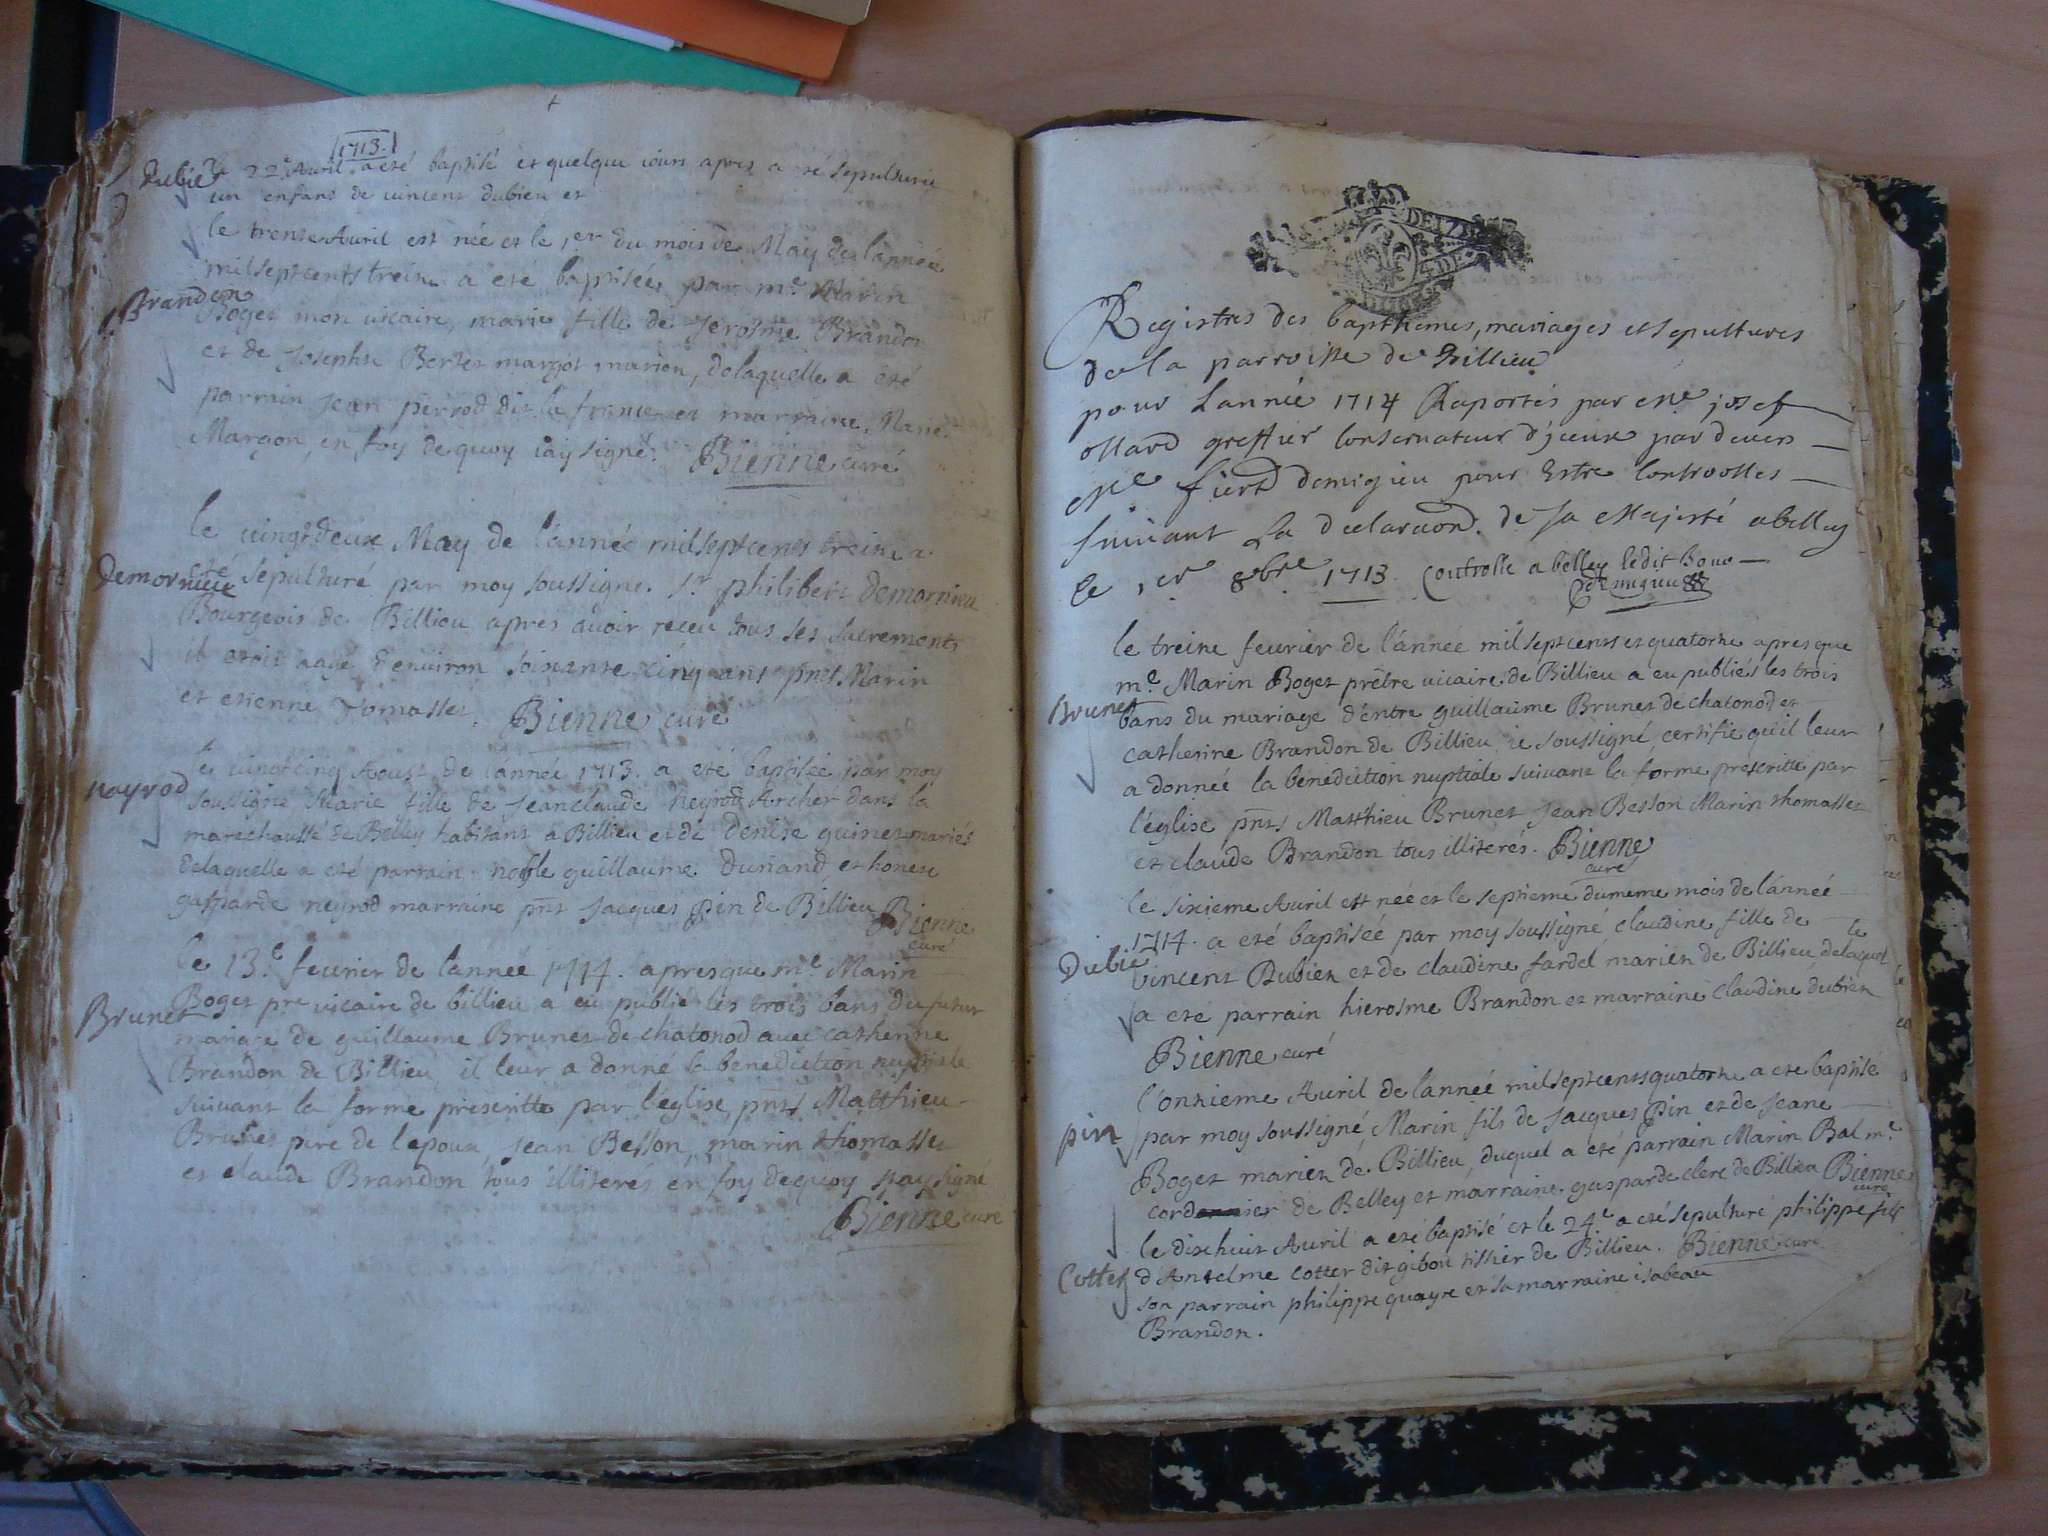 1713.
Dubien
le 22e Avril a eté baptisé et quelque iours apres a eté sepulturé
un enfant de vincent dubien et
le trente Avril est née et le 1er du mois de May de l'année
mil sept cents treize a eté baptisée par me Marin
Brandon
Boget mon vicaire, marie fille de Jerosme Brandon
et de Josephte Bertet margot mariez, de laquelle a eté
parrain jean perrod dit la france et marraine Marie
Margon, en foy de quoy i'ay signé. Bienne curé
le vingt deux May de l'année mil sept cents treize a
Demornieu
eté sepulturé par moy soussigné. Sr philibert Demornieu
Bourgeois de Billieu apres avoir receu tous ses sacrements
il etoit aagé d'environ soixante cinq ans pnts Marin
et etienne Thomasset. Bienne curé
le vingt cinq Aoust de l'année 1713. a eté baptisée par moy
nayrod
soussigné Marie fille de jeanclaude neyrod Archer dans la
marechaussé de Belley habitant a Billieu et de denise guinet mariés
de laquelle a eté parrain noble guillaume Dunand, et honeste
gasparde neyrod marraine pnt Jacques pin de Billieu Bienne
curé
le 13.e fevrier de l'année 1714. apres que me Marin
Brunet
Boget pre vicaire de billieu a eu publié les trois bans du futur
mariage de guillaume Brunet de chatonod avec catherine
Brandon de Billieu, il leur a donné la benediction nuptiale
suivant la forme prescritte par l'église, pnts Matthieu
Brunet pere de l'epoux, jean Besson, marin thomasset
et claude Brandon tous illiterés en foy de quoy j'ay signé
Bienne curé
Registres des bapthemes, mariages et sepultures
de la parroisse de Billieu
pour Lannée 1714 Raportés par Me josef
ollard greffier Conservateur d'jceux par devers
Me fierd demigieu pour Estre Controolles
suivant La declaraon. de sa Majesté a belley
Le 1er 8bre 1713. Controllé a belley ledit Jour
demigieu
le treize fevrier de l'année mil sept cents et quatorze apres que
me. Marin Boget prêtre vicaire de Billieu a eu publiés les trois
Brunet
bans du mariage d'entre guillaume Brunet de chatonod et
catherine Brandon de Billieu, ie soussigné certifie qu'il leur
a donnée la benediction nuptiale suivant la forme prescritte par
l'église pnts Matthieu Brunet jean Besson Marin thomasset
et claude Brandon tous illiterés. Bienne
curé
le sixieme Avril est née et le septieme du meme mois de l'année
1714. a eté baptiséé par moy soussigné claudine fille de
Dubien
vincent Dubien et de claudine fardel mariez de Billieu, delaquelle
a eté parrain hierosme Brandon et marraine claudine dubien
Bienne curé
l'onzieme Avril de l'année mil sept cents quatorze a eté baptisé
pin
par moy soussigné Marin fils de jacques pin et de jeane
Boget mariez de Billieu, duquel a eté parrain Marin Bal me.
cordonnier de Belley et marraine gasparde clerc de Billieu Bienne
curé
le dixhuit Avril a eté baptisé et le 24.e a eté sepulturé philippe fils
Cotter
d'Antelme cotter dit gibou tissier de Billieu. Bienne curé
son parrain philippe quayre et sa marraine isabeau
Brandon.